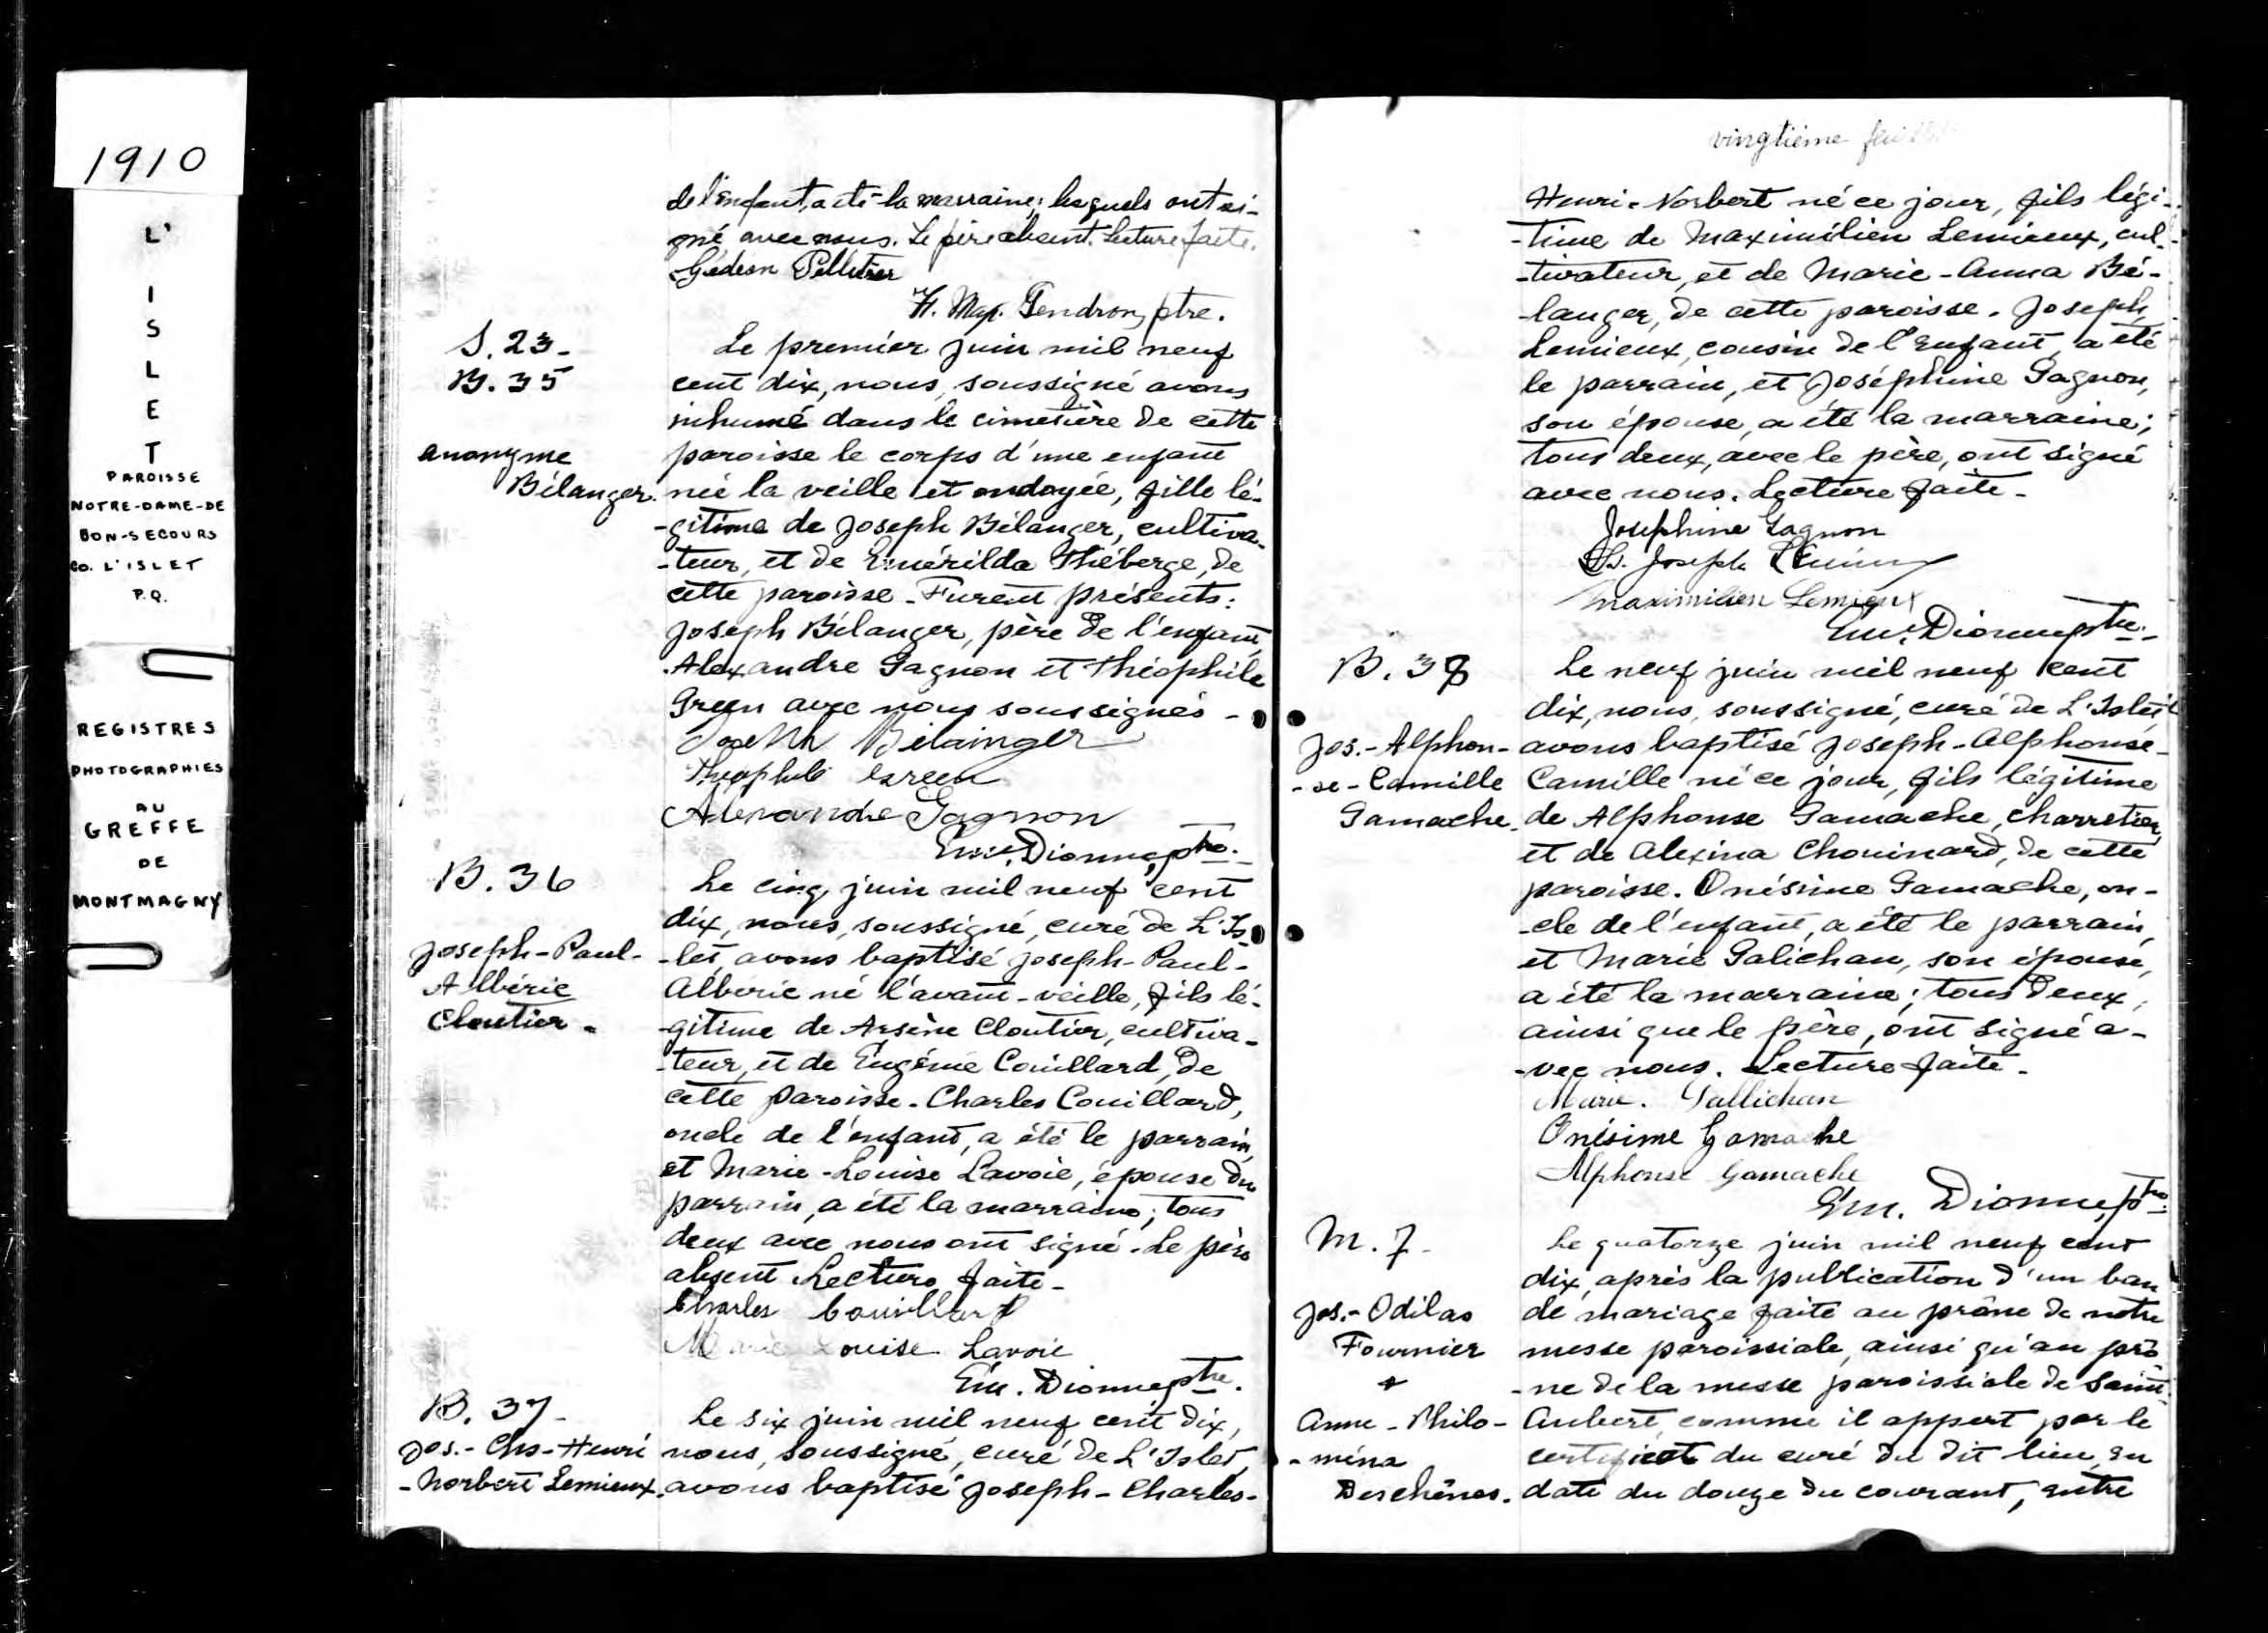 1910
L'
I
S
L
E
T
PAROISSE
NOTRE-DAME-DE
BON-SECOURS
CO. L'ISLET
P.Q.
REGISTRES
PHOTOGRAPHIES
AU
GREFFE
DE
MONTMAGNY
de l'enfant, a été la marraine; lesquels ont si-
gné avec nous. Le père absent. Lecture faite.
Gédéon Pelletier
H. Max. Gendron, ptre.
S. 23-
B. 35
anonyme
Bélanger.
Le premier juin mil neuf
cent dix, nous, soussigné avons
inhumé dans le cimetière de cette
paroisse le corps d'une enfant
née la veille et ondoyée, fille lé-
-gitime de Joseph Bélanger, cultiva-
-teur, et de Emérilda Théberge, de
cette paroisse - Furent présents:
Joseph Bélanger, père de l'enfant,
Alexandre Gagnon et Théophile
Green avec nous soussignés -
Joseph Bélainger
Théophile Green
Alexandre Gagnon
Em. Dionne, ptre.
B. 36
Joseph-Paul-
Albéric
Cloutier -
Le cinq juin mil neuf cent
dix, nous, soussigné, curé de L'Is-
-let, avons baptisé Joseph-Paul-
Albéric né l'avant-veille, fils lé-
-gitime de Arsène Cloutier, cultiva-
-teur, et de Eugénie Couillard, de
cette paroisse - Charles Couillard,
oncle de l'enfant, a été le parrain,
et Marie-Louise Lavoie, épouse du
parrain, a été la marraine; tous
deux avec nous ont signé. Le père
absent. Lecture faite -
Charles Couillard
Marie Louise Lavoie
Em. Dionne, ptre.
B. 37-
Jos.- Chs-Henri
-Norbert Lemieux.
Le six juin mil neuf cent dix,
nous, soussigné, curé de L'Islet,
avons baptisé Joseph-Charles-
vingtième
Henri-Norbert né ce jour, fils légi-
-time de Maximilien Lemieux, cul-
-tivateur, et de Marie-Anna Bé-
-langer, de cette paroisse. Joseph
Lemieux, cousin de l'enfant, a été
le parrain, et Joséphine Gagnon,
son épouse, a été la marraine;
tous deux, avec le père, ont signé
avec nous. Lecture faite -
Josephine Gagnon
Joseph Lemieux
Maximilien Lemieux
Em. Dionne ptre.
B. 38
Jos.- Alphon-
-se-Camille
Gamache.
Le neuf juin mil neuf cent
dix, nous, soussigné, curé de L'Islet
avons baptisé Joseph-Alphonse-
Camille né ce jour, fils légitime
de Alphonse Gamache, charretier,
et de Alexina Chouinard, de cette
paroisse. Onésime Gamache, on-
-cle de l'enfant, a été le parrain,
et Marie Galichan, son épouse,
a été la marraine; tous deux,
ainsi que le père, ont signé a-
-vec nous. Lecture faite -
Marie. Gallichan
Onésime Gamache
Alphonse Gamache
Em. Dionne, ptre.
M. 7-
Jos.- Odilas
Fournier
+
Anne-Philo-
-mina
Deschênes.
Le quatorze juin mil neuf cent
dix, après la publication d'un ban
de mariage faite au prône de notre
messe paroissiale, ainsi qu'au prô
-ne de la messe paroissiale de Saint-
Aubert, comme il appert par le
certificat du curé du dit lieu, en
date du douze du courant, entre